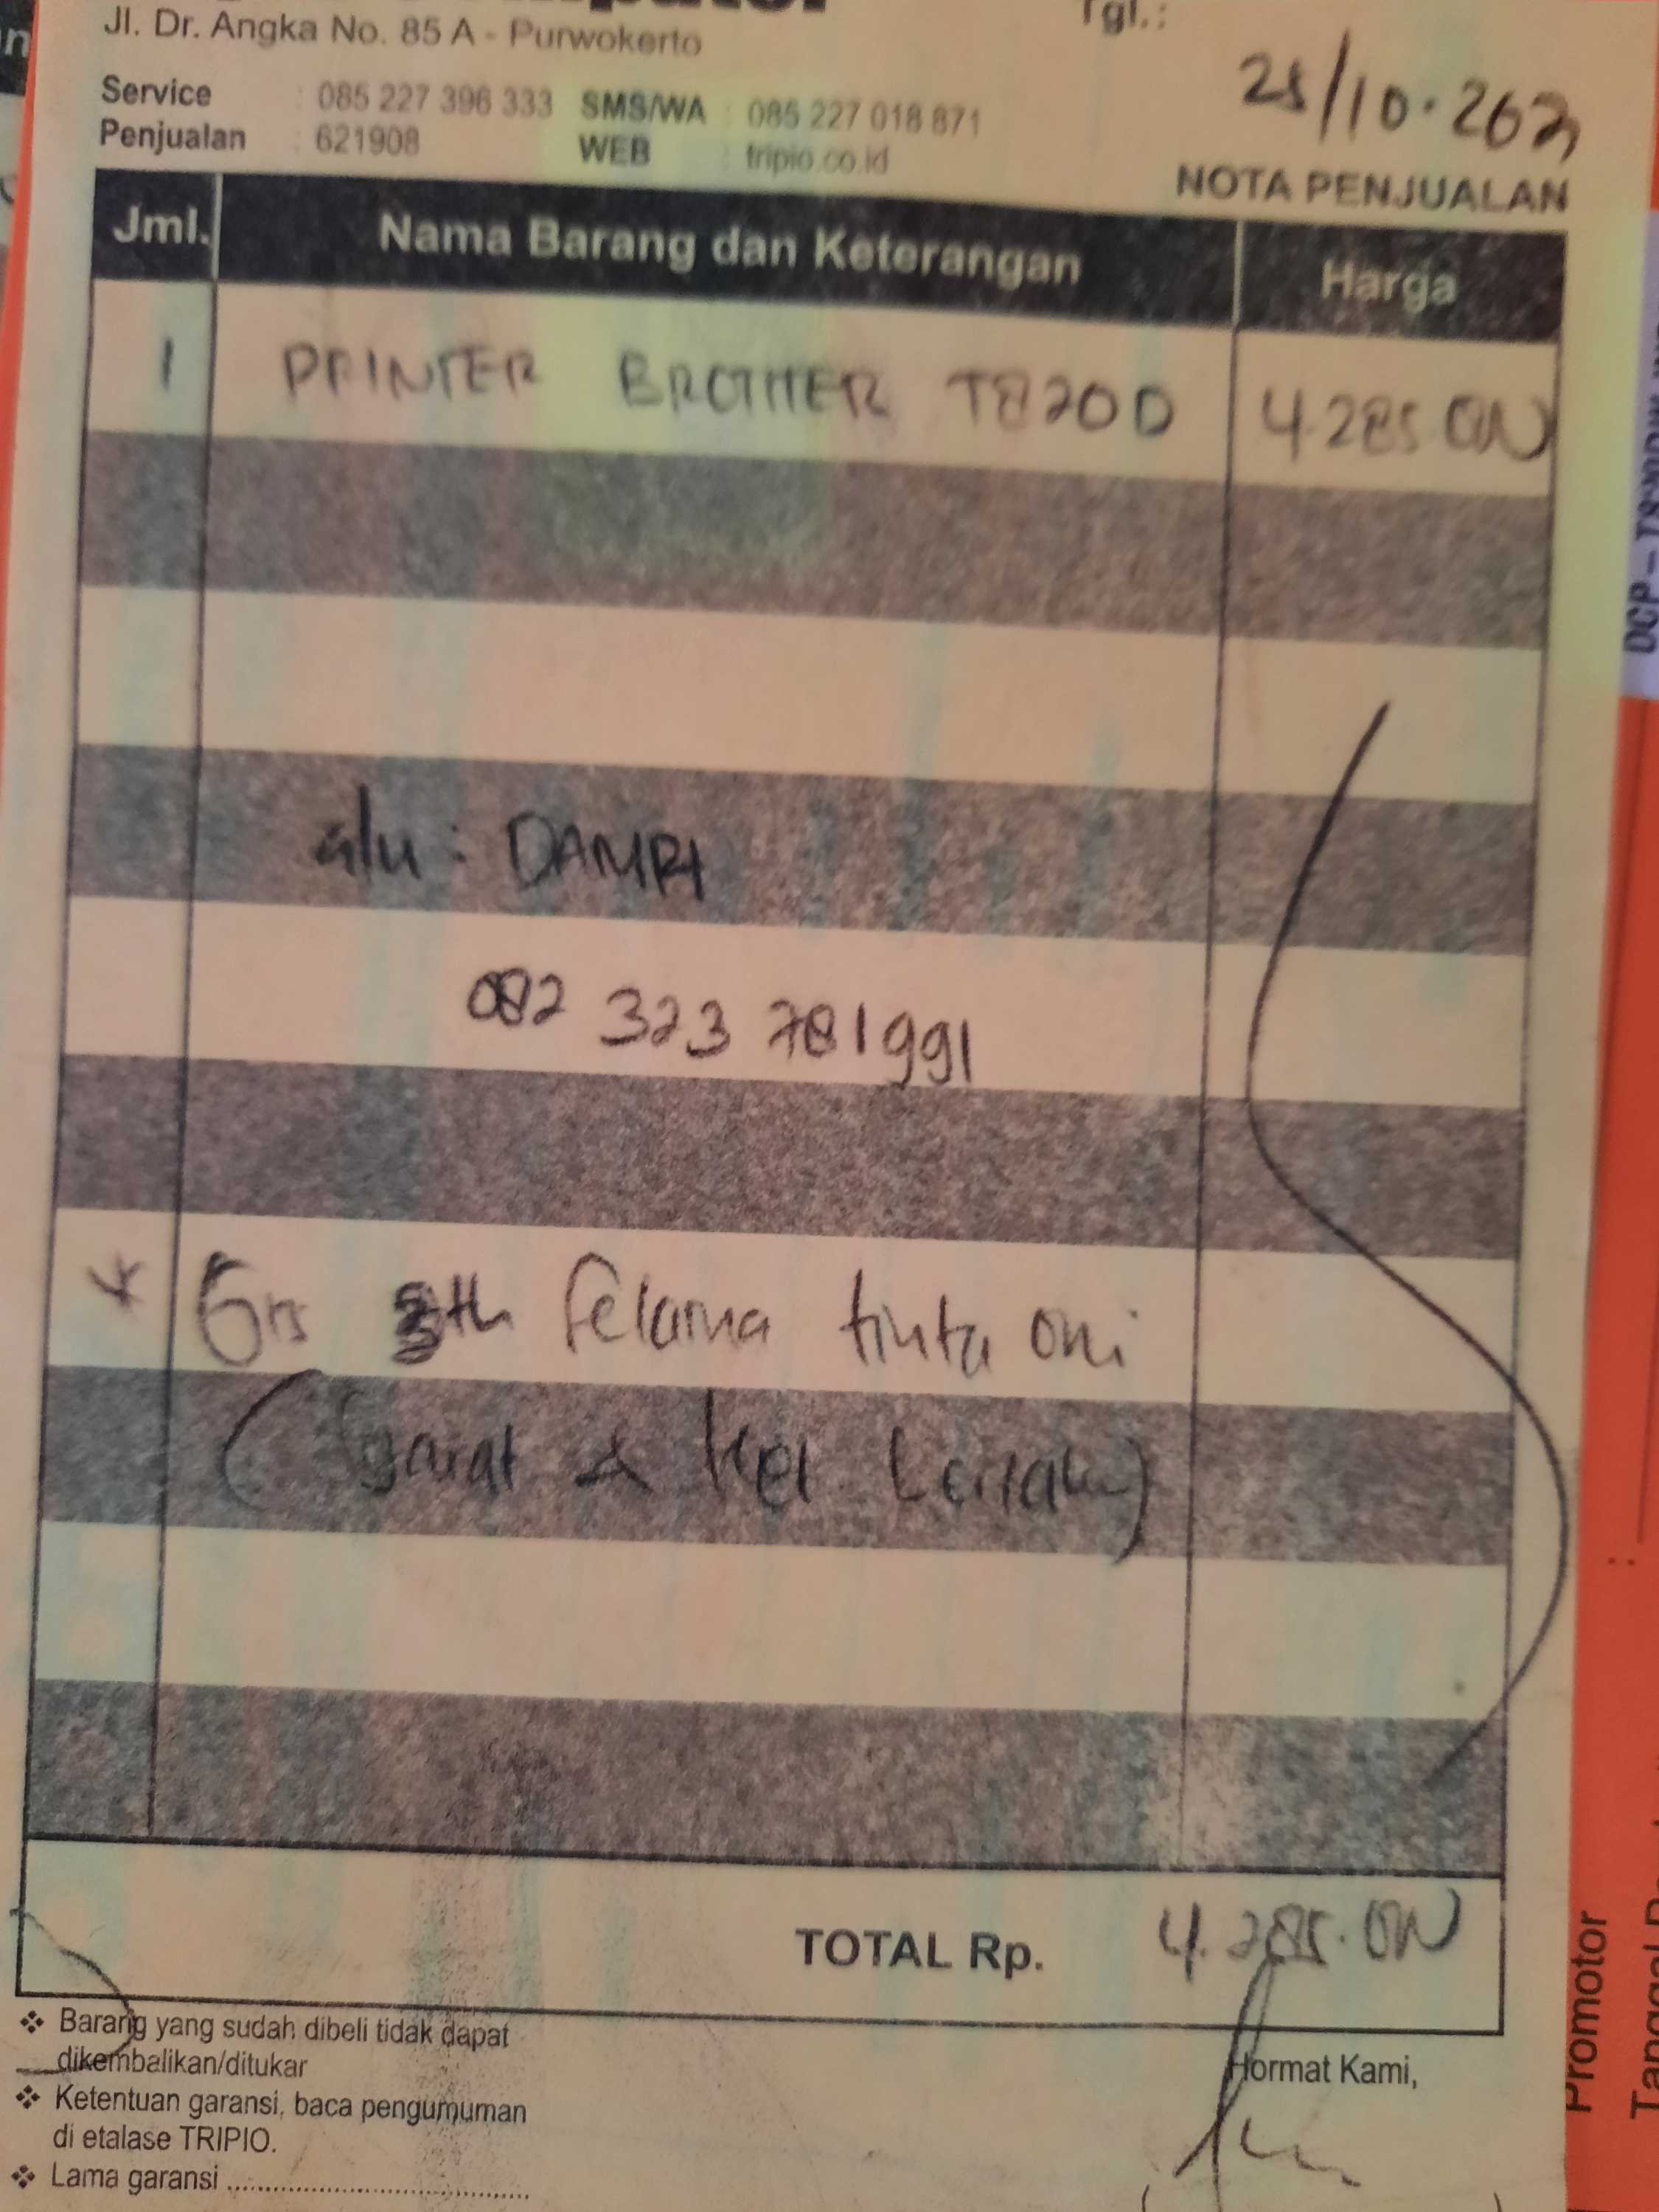 Jl. Dr. Angka No. 85 A - Purwokerto
Tgl.:
Service : 085 227 396 333 SMS/WA : 085 227 018 871
Penjualan : 621908 WEB : tripio.co.id
NOTA PENJUALAN
Jml. Nama Barang dan Keterangan Harga
1 PRINTER BROTHER T820D 4.285.000
a/n : DAMRI
082 323 781991
* Grs th selama tinta ori
(Syarat & ket berlaku)
TOTAL Rp. 4.285.000
❖ Barang yang sudah dibeli tidak dapat
dikembalikan/ditukar
❖ Ketentuan garansi, baca pengumuman
di etalase TRIPIO.
❖ Lama garansi ..............................
Hormat Kami,
Promotor